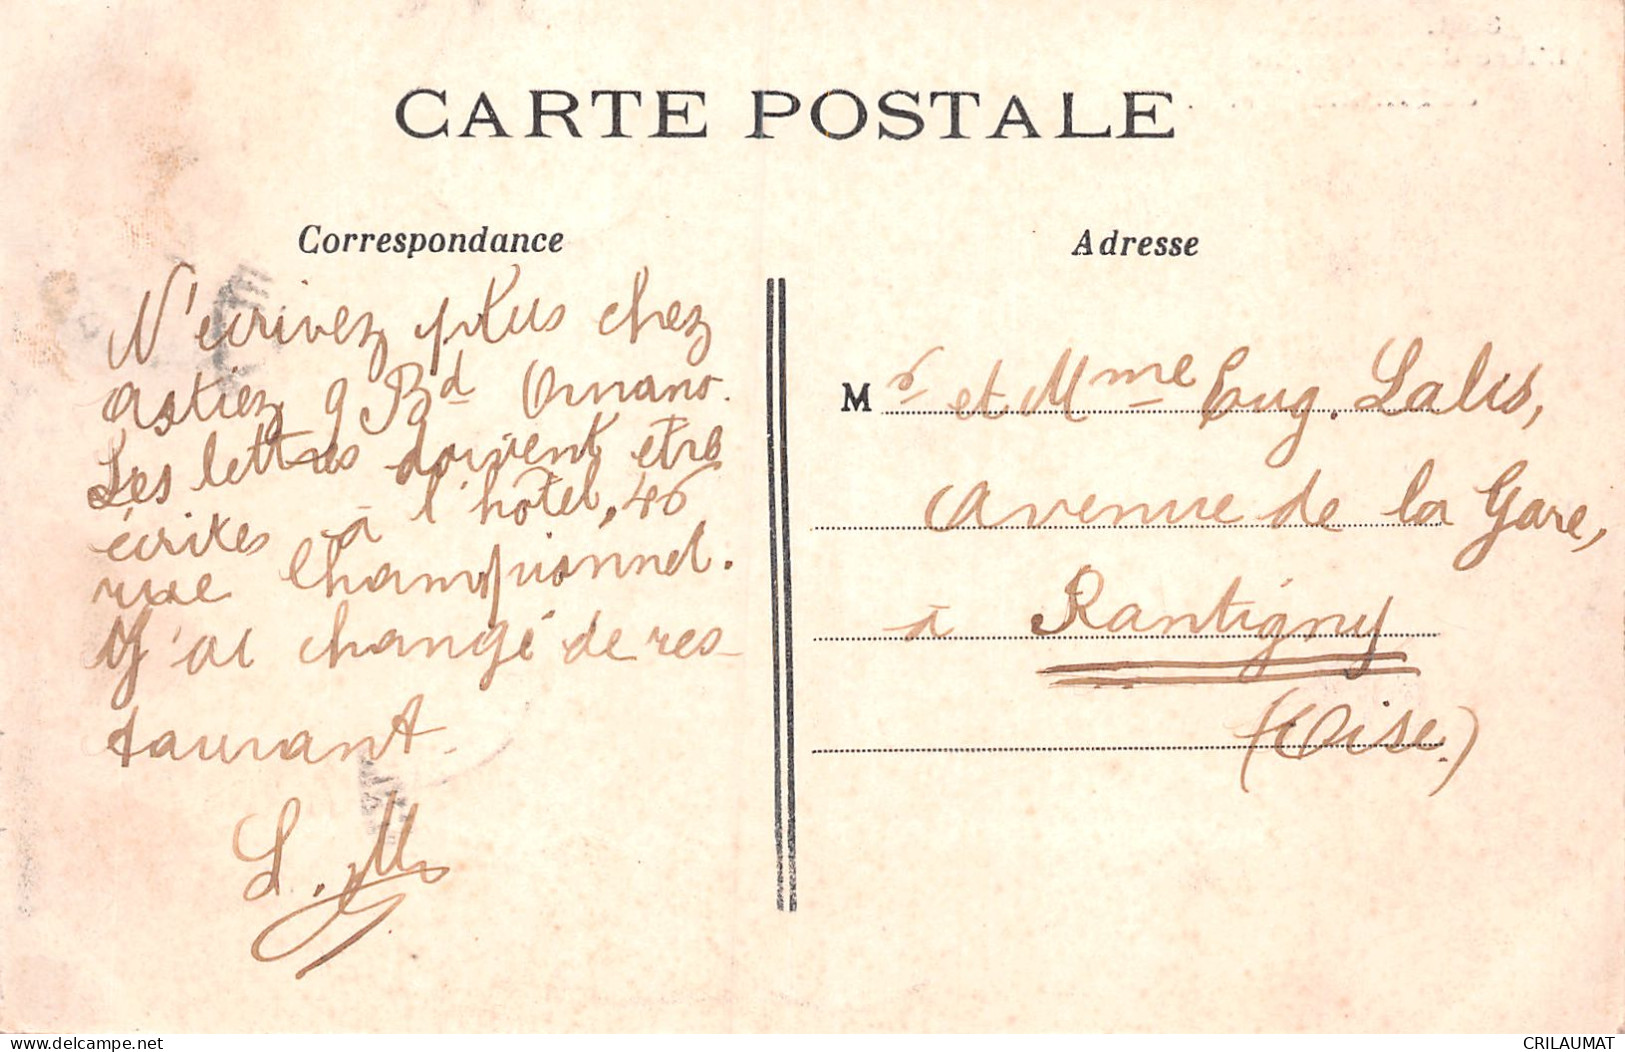 CARTE POSTALE
Correspondance
N'écrivez plus chez
Astiez 9 Bd Ornano.
Les lettres doivent être
écrites à l'hôtel, 46
rue Championnet.
J'ai changé de res-
taurant.
L. M
Adresse
Mr et Mme Eug. Lalis,
Avenue de la Gare,
à Rantigny
(Oise)
www.delcampe.net
CRILAUMAT